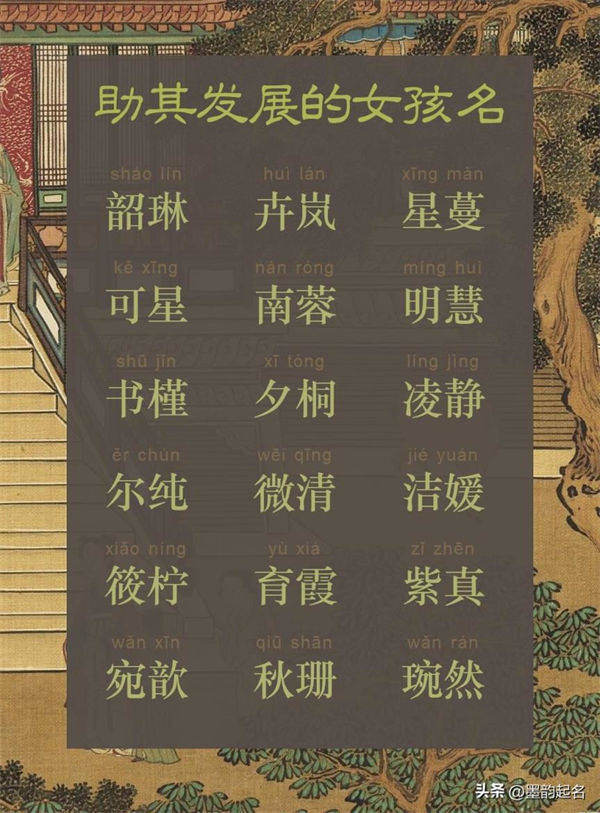 助其发展的女孩名
sháo lín huì lán xīng màn
韶琳 卉岚 星蔓
kě xīng nán róng míng huì
可星 南蓉 明慧
shū jǐn xī tóng líng jìng
书槿 夕桐 凌静
ěr chún wēi qīng jié yuán
尔纯 微清 洁媛
xiǎo níng yù xiá zǐ zhēn
筱柠 育霞 紫真
wǎn xīn qiū shān wǎn rán
宛歆 秋珊 琬然
头条 @墨韵起名